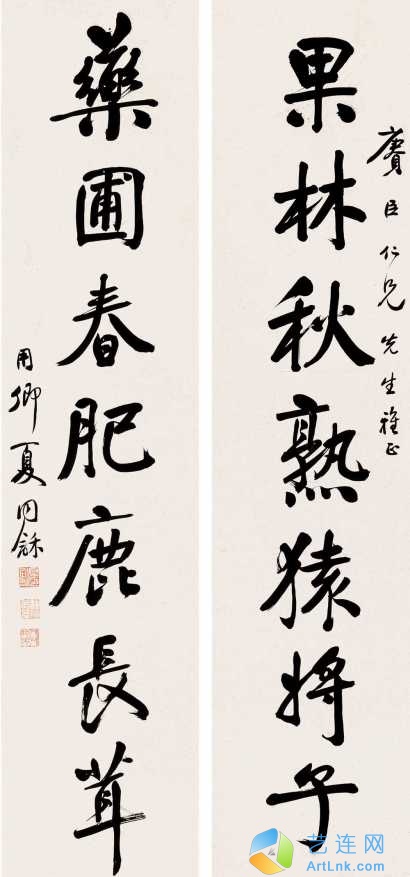 賡臣仁兄先生雅正
果林秋熟猿將子
藥圃春肥鹿長茸
用卿夏同龢
艺连网
ArtLnk.com